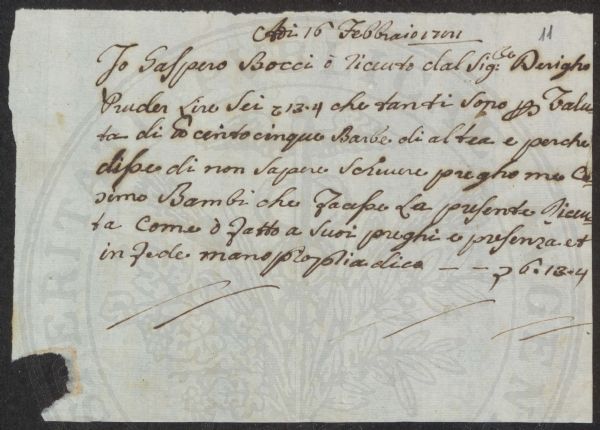 Adi 16 Febbraio 1701
11
Io Gaspero Bocci ò riceuto dal Sig:re
Pruder Lire Sei 13.4 che tanti sono p valu-
ta di centocinque Barbe di altea e perche
disse di non sapere scriuere pregho me Co-
simo Bambi che facesse La presente riceu-
ta come ò fatto a suoi preghi e presenza et
in fede mano propria dico — — 6.13.4